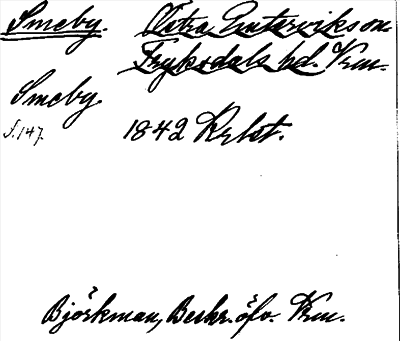 Smeby. Östra Emterviks sn.
Fryksdals hd. Vrm.
Smeby
S. 147. 1842 Relst.
Björkman, Beskr. öfv. Vrm.